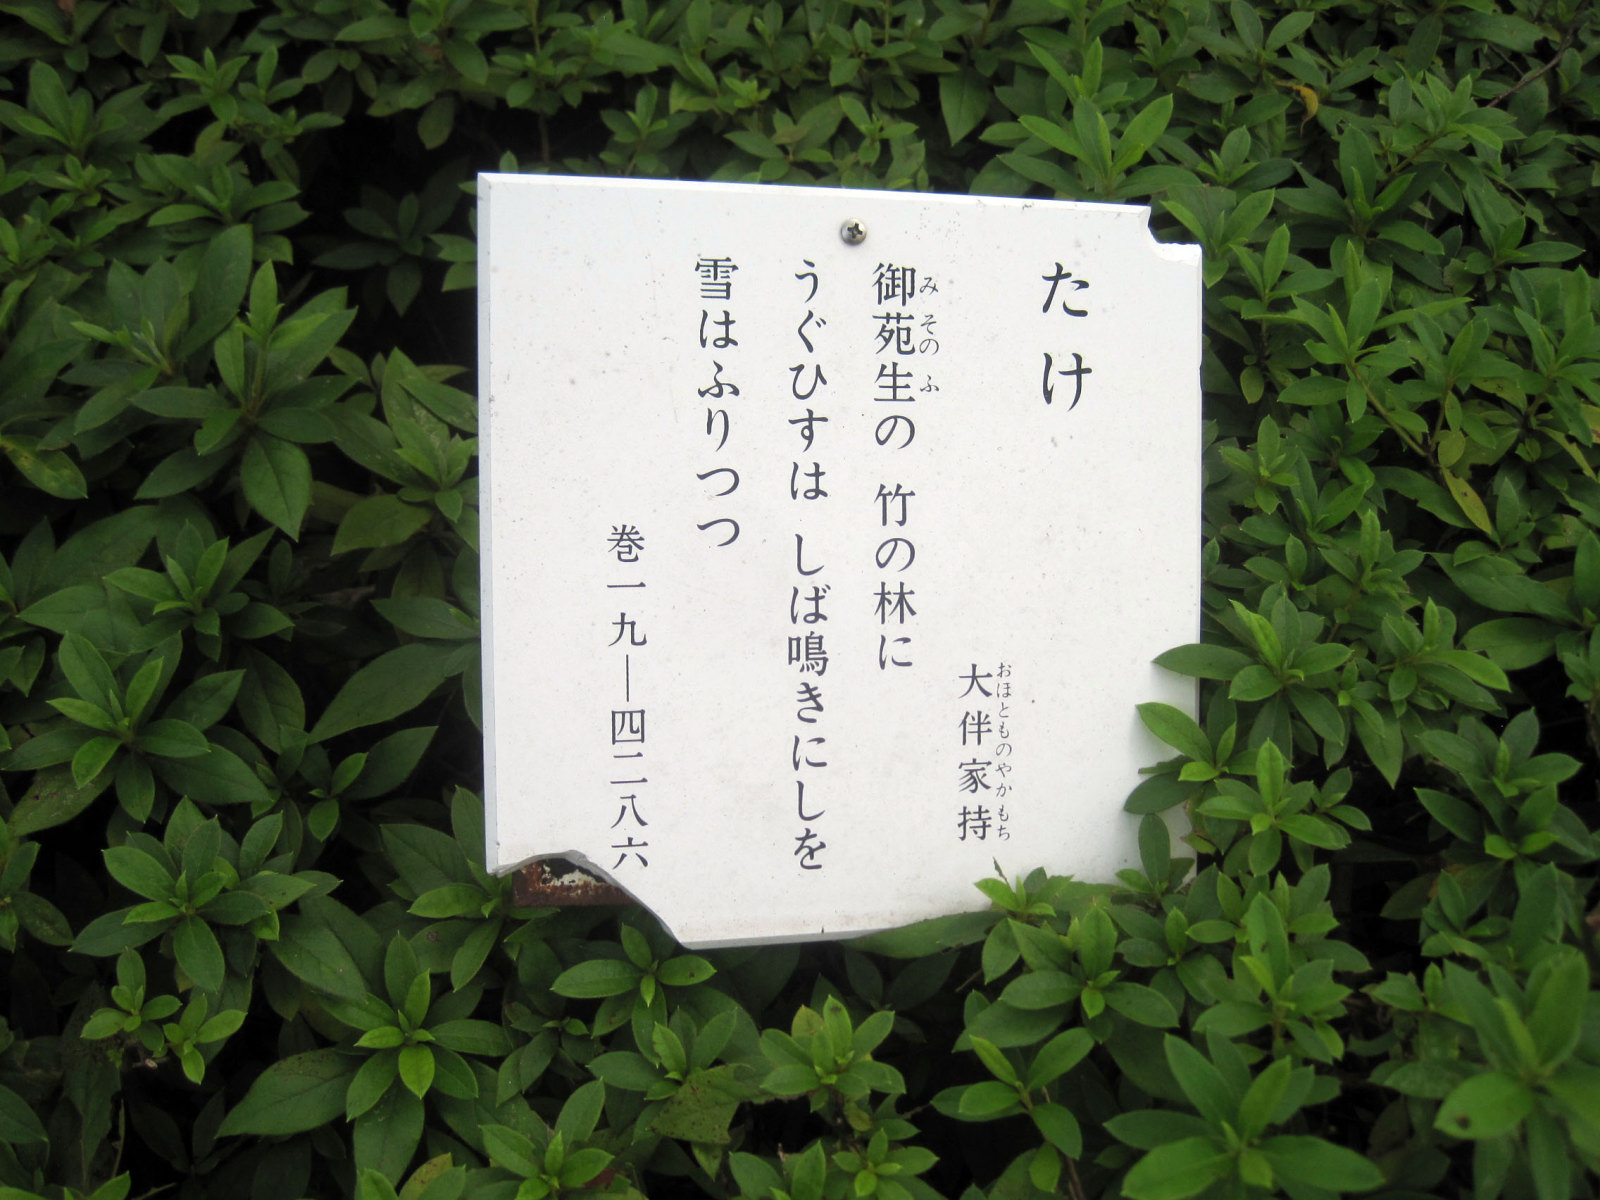 たけ
大伴家持
おほとものやかもち
御苑生の 竹の林に
みそのふ
うぐひすは しば鳴きにしを
雪はふりつつ
巻一九―四二八六